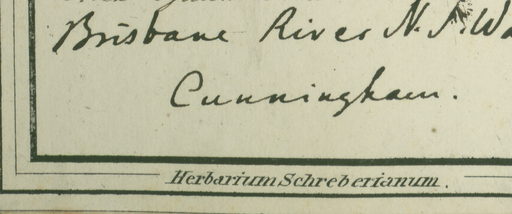 Brisbane River N. S. Wa
Cunningham.
Herbarium Schreberianum.